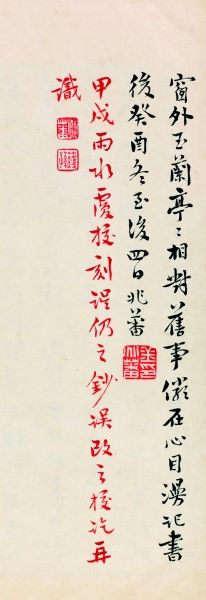 窗外玉蘭亭亭相對舊事儼在心目漫記書
後癸酉冬至後四日兆蕃
甲戌雨水覆校刻誤仍之鈔誤改之校訖再
識